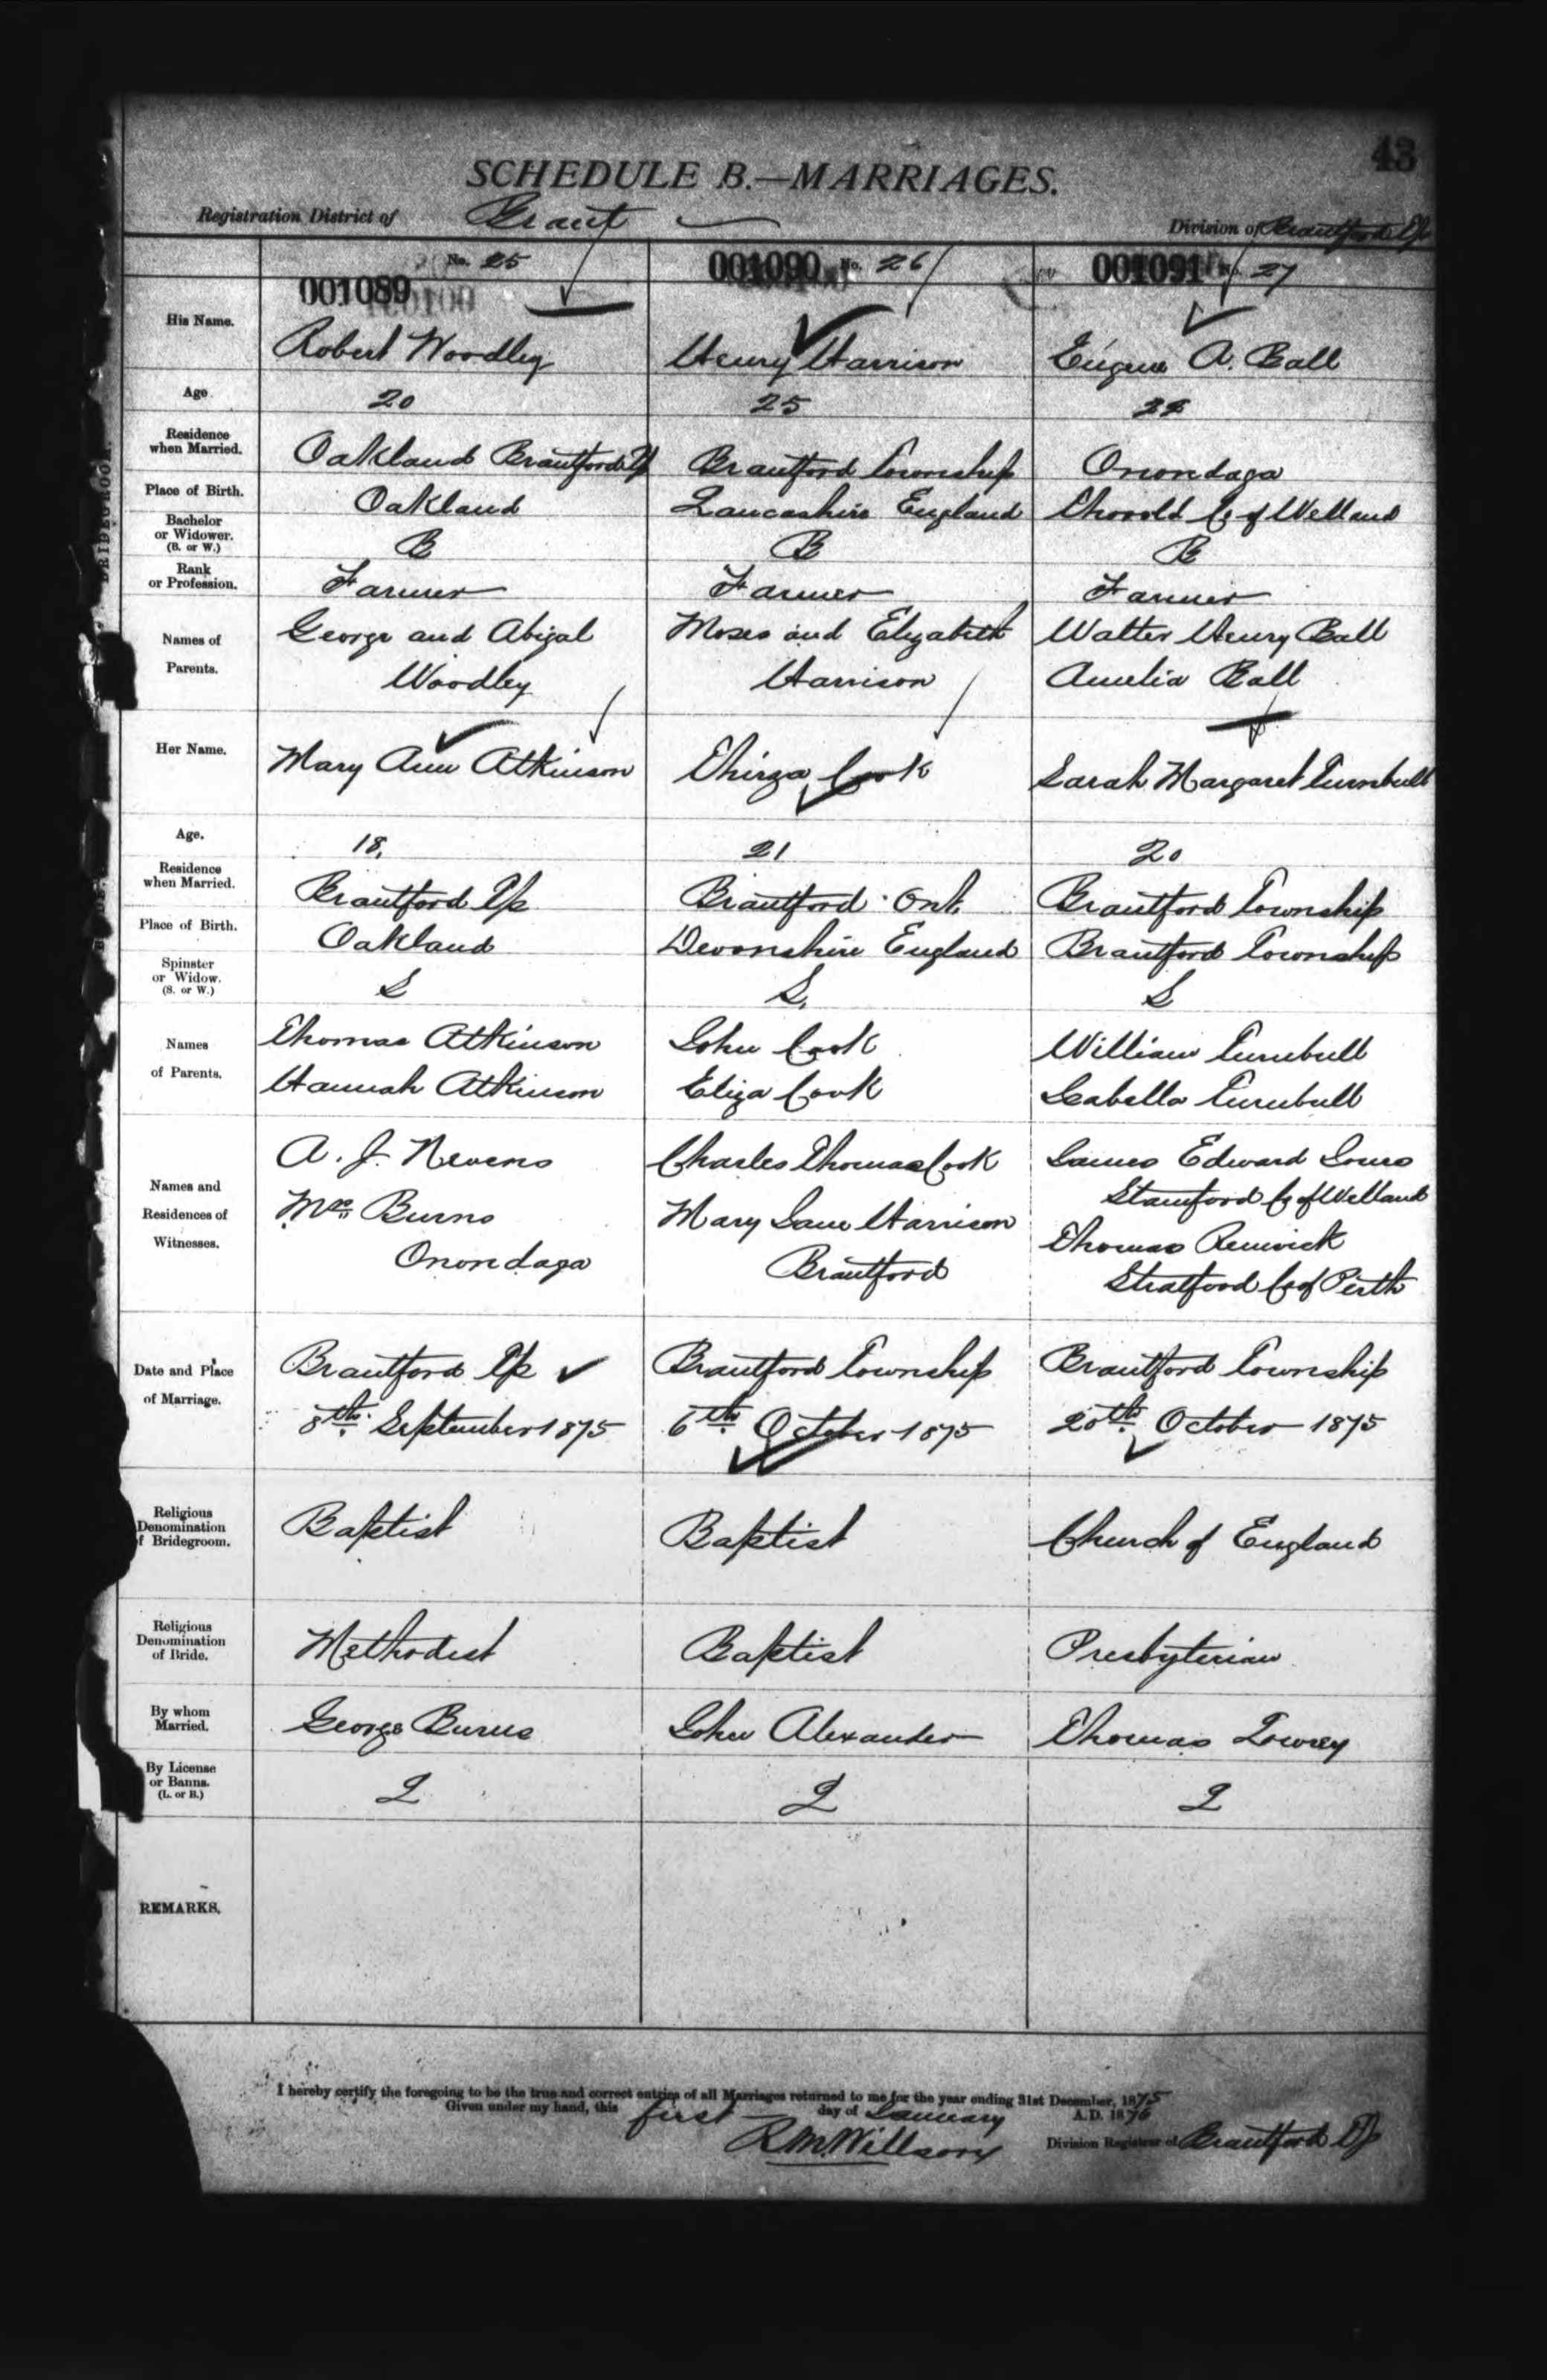 43
SCHEDULE B.—MARRIAGES.
Registration District of Brant
Division of Brantford Tp
No. 25
001089
001090 No. 26
001091 No. 27
BRIDEGROOM.
His Name.
Robert Woodley
Henry Harrison
Eugene A. Ball
Age.
20
25
Residence
when Married.
Oakland Brantford Tp
Brantford Township
Onondaga
Place of Birth.
Oakland
Lancashire England
Thorold Co of Welland
Bachelor
or Widower.
(B. or W.)
B
B
B
Rank
or Profession.
Farmer
Farmer
Farmer
Names of
Parents.
George and Abigal
Woodley
Moses and Elizabeth
Harrison
Walter Henry Ball
Amelia Ball
Her Name.
Mary Ann Atkinson
Thirza Cook
Sarah Margaret Turnbull
Age.
18.
21
20
Residence
when Married.
Brantford Tp
Brantford Ont.
Brantford Township
Place of Birth.
Oakland
Devonshire England
Brantford Township
Spinster
or Widow.
(S. or W.)
S
S.
S
Names
of Parents.
Thomas Atkinson
Hannah Atkinson
John Cook
Eliza Cook
William Turnbull
Isabella Turnbull
Names and
Residences of
Witnesses.
A. J. Nevens
Mrs Burns
Onondaga
Charles Thomas Cook
Mary Jane Harrison
Brantford
James Edward
Stamford Co of Welland
Thomas Renwick
Stratford Co of Perth
Date and Place
of Marriage.
Brantford Tp
8th September 1875
Brantford Township
6th October 1875
Brantford Township
20th October 1875
Religious
Denomination
of Bridegroom.
Baptist
Baptist
Church of England
Religious
Denomination
of Bride.
Methodist
Baptist
Presbyterian
By whom
Married.
George Burns
John Alexander
Thomas Lowrey
By License
or Banns.
(L. or B.)
L
L
L
REMARKS.
I hereby certify the foregoing to be the true and correct entries of all Marriages returned to me for the year ending 31st December, 1875
Given under my hand, this first day of January A.D. 1876
R M Willson Division Registrar of Brantford Tp